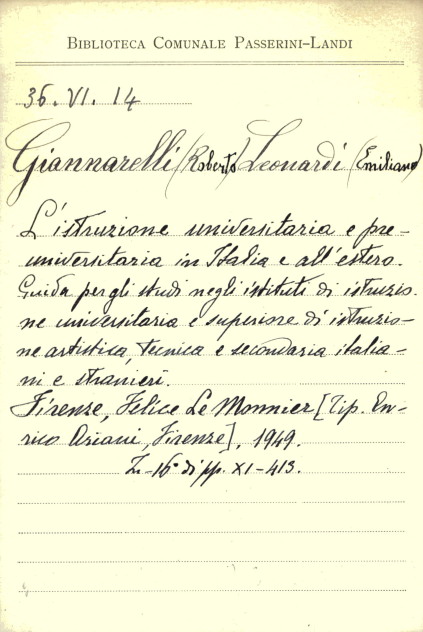 BIBLIOTECA COMUNALE PASSERINI-LANDI
36. VI. 14
Giannarelli (Roberto) Leonardi (Emiliano)
L'istruzione universitaria e pre-
universitaria in Italia e all'estero.
Guida per gli studi negli istituti di istruzio-
ne universitaria e superiore di istruzio-
ne artistica, tecnica e secondaria italia-
ni e stranieri.
Firenze, Felice Le Monnier [Tip. En-
rico Ariani, Firenze], 1949.
In-16° di pp. XI-413.